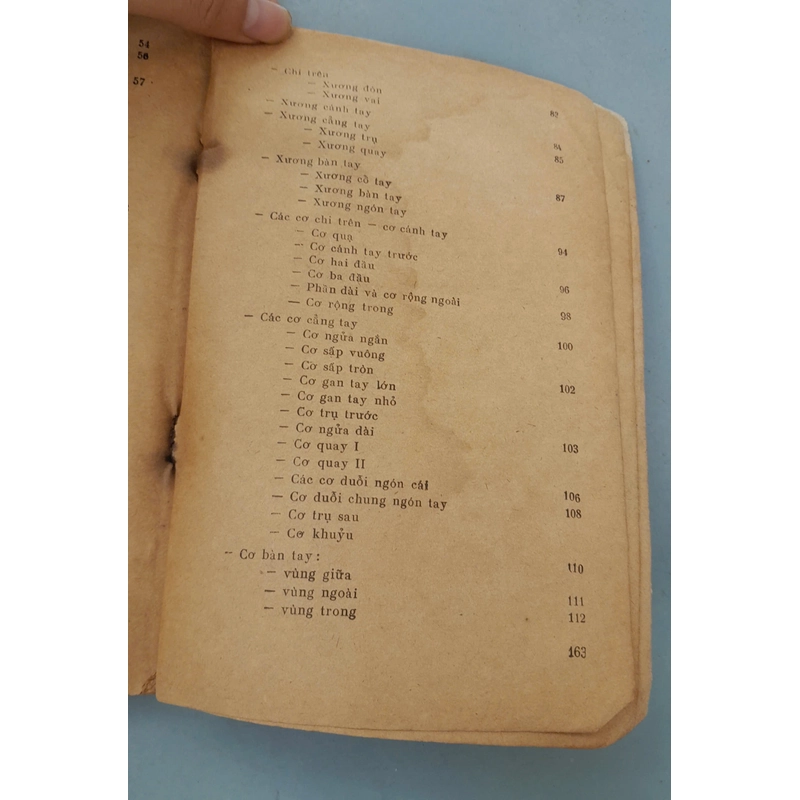 54
56
57
— Chi trên
— Xương đòn
— Xương vai
— Xương cánh tay 82
— Xương cẳng tay
— Xương trụ 84
— Xương quay 85
— Xương bàn tay
— Xương cổ tay
— Xương bàn tay 87
— Xương ngón tay
— Các cơ chi trên — cơ cánh tay
— Cơ quạ 94
— Cơ cánh tay trước
— Cơ hai đầu
— Cơ ba đầu 96
— Phần dài và cơ rộng ngoài
— Cơ rộng trong 98
— Các cơ cẳng tay
— Cơ ngửa ngắn 100
— Cơ sấp vuông
— Cơ sấp tròn
— Cơ gan tay lớn 102
— Cơ gan tay nhỏ
— Cơ trụ trước
— Cơ ngửa dài
— Cơ quay I 103
— Cơ quay II
— Các cơ duỗi ngón cái
— Cơ duỗi chung ngón tay 106
— Cơ trụ sau 108
— Cơ khuỷu
— Cơ bàn tay :
— vùng giữa 110
— vùng ngoài 111
— vùng trong 112
163